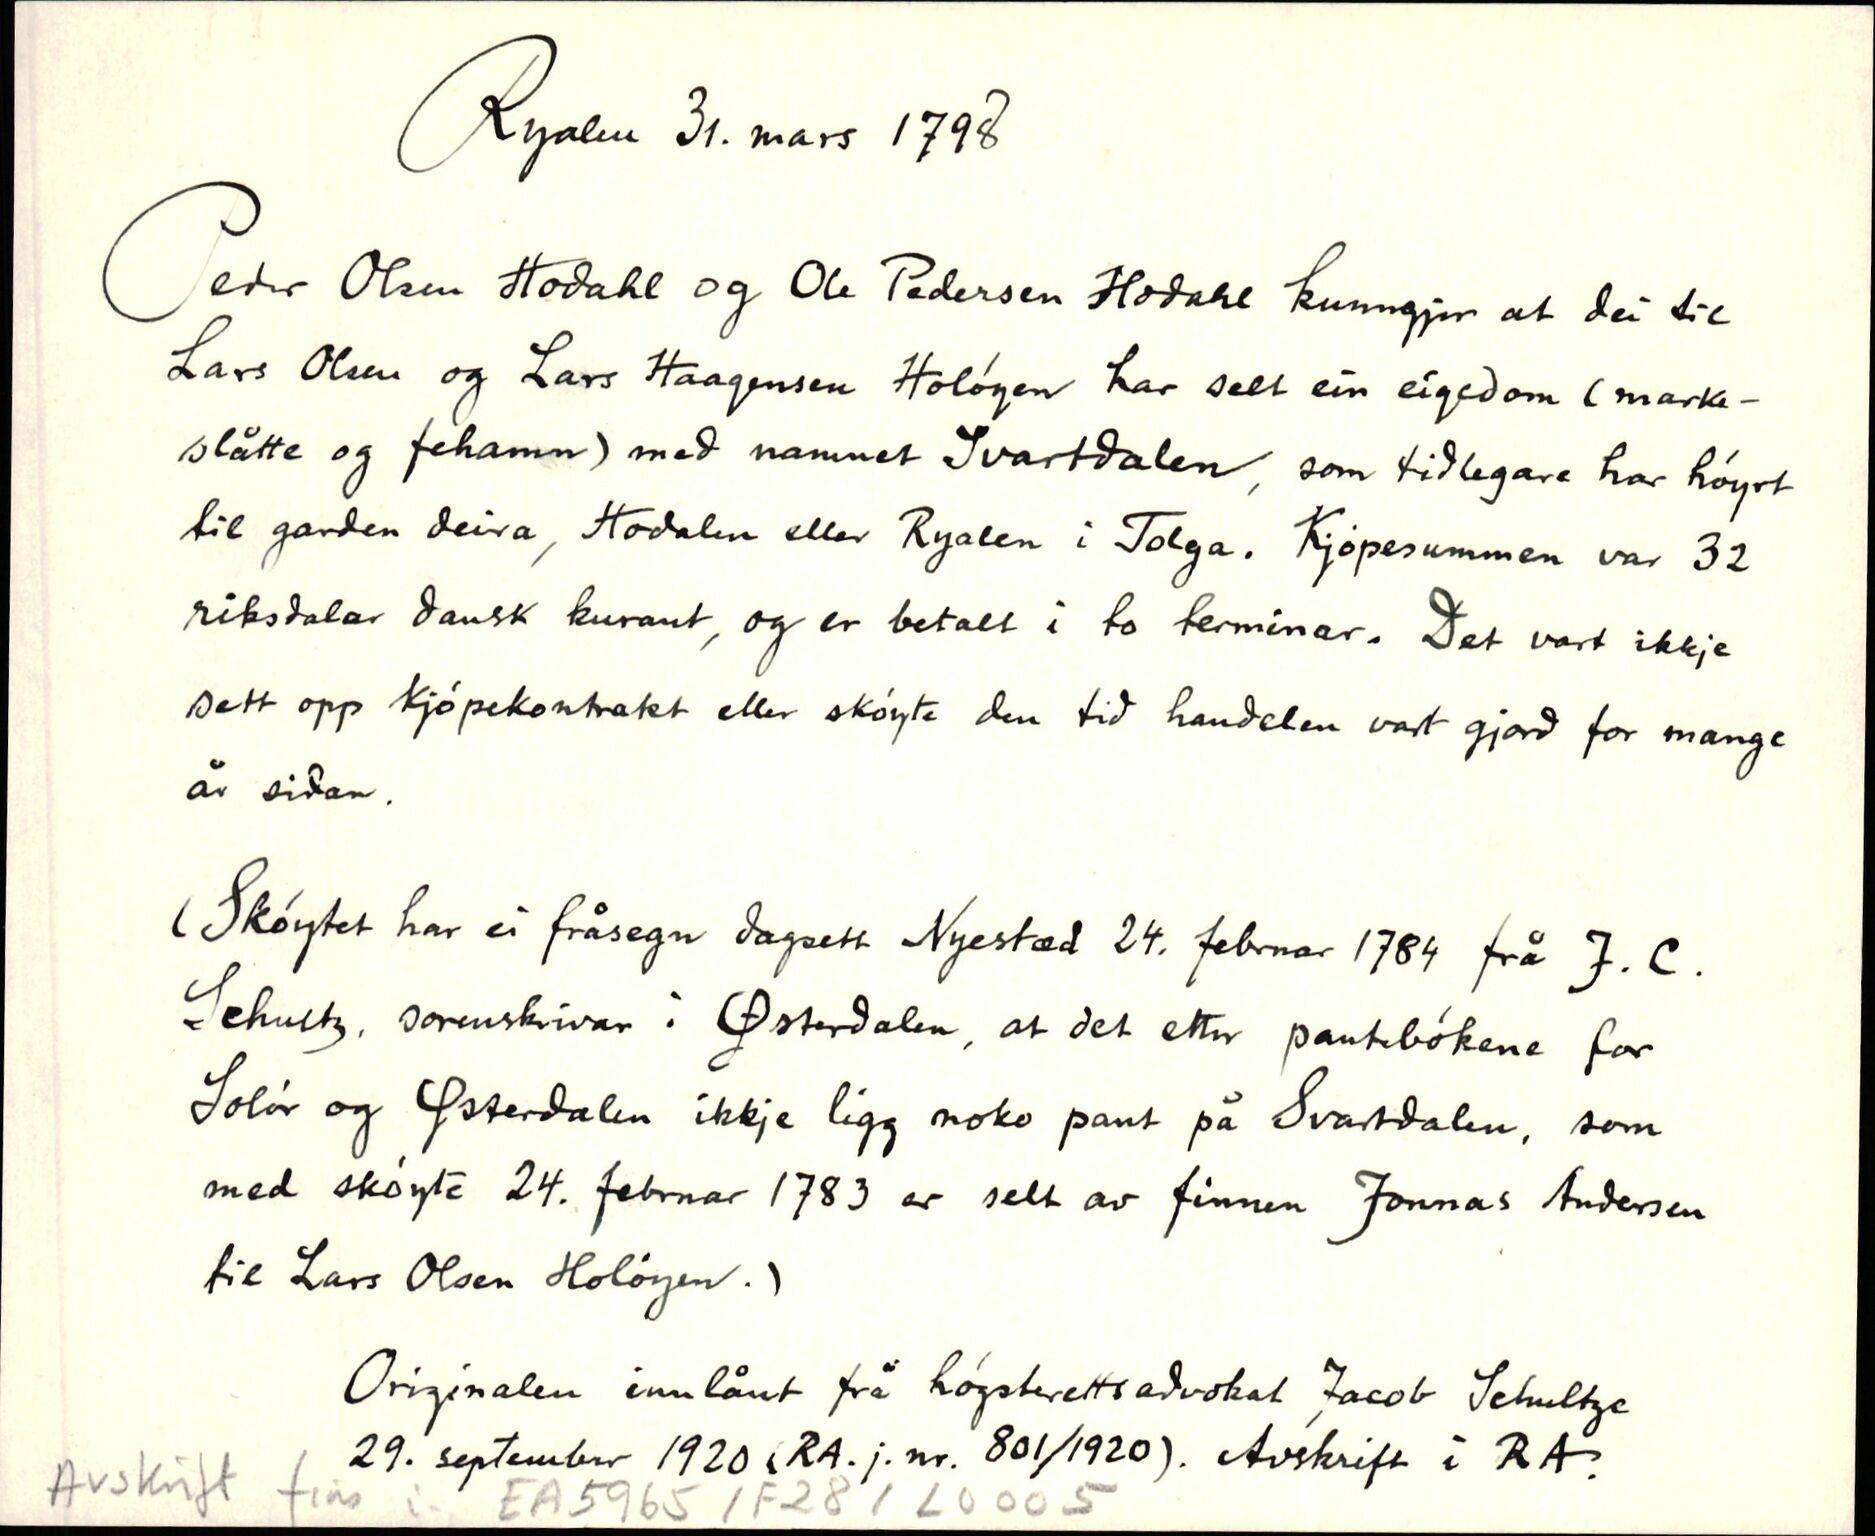 Ryalen 31. mars 1798
Peder Olsen Hodahl og Ole Pedersen Hodahl kunngjer at dei til
Lars Olsen og Lars Haagensen Holóyen har selt ein eigedom (marke-
slåtte og fehamn) med namnet Svartdalen, som tidlegare har hóyrt
til garden deira, Hodalen eller Ryalen i Tolga. Kjópesummen var 32
riksdalar dansk kurant, og er betalt i to terminar. Det vart ikkje
sett opp kjópekontrakt eller skóyte den tid handelen vart gjord for mange
år sidan.
(Skóytet har ei fråsegn dagsett Nyestæd 24. februar 1784 frå J. C.
Schultz, sorenskrivar i Østerdalen, at det etter pantebókene for
Solór og Østerdalen ikkje ligg noko pant på Svartdalen, som
med skóyte 24. februar 1783 er selt av finnen Jonnas Andersen
til Lars Olsen Holóyen.)
Originalen innlånt frå hógsterettsadvokat Jacob Schultze
29. september 1920 (RA. j. nr. 801/1920). Avskrift i RA.
Avskrift fins i EA5965/F28/L0005